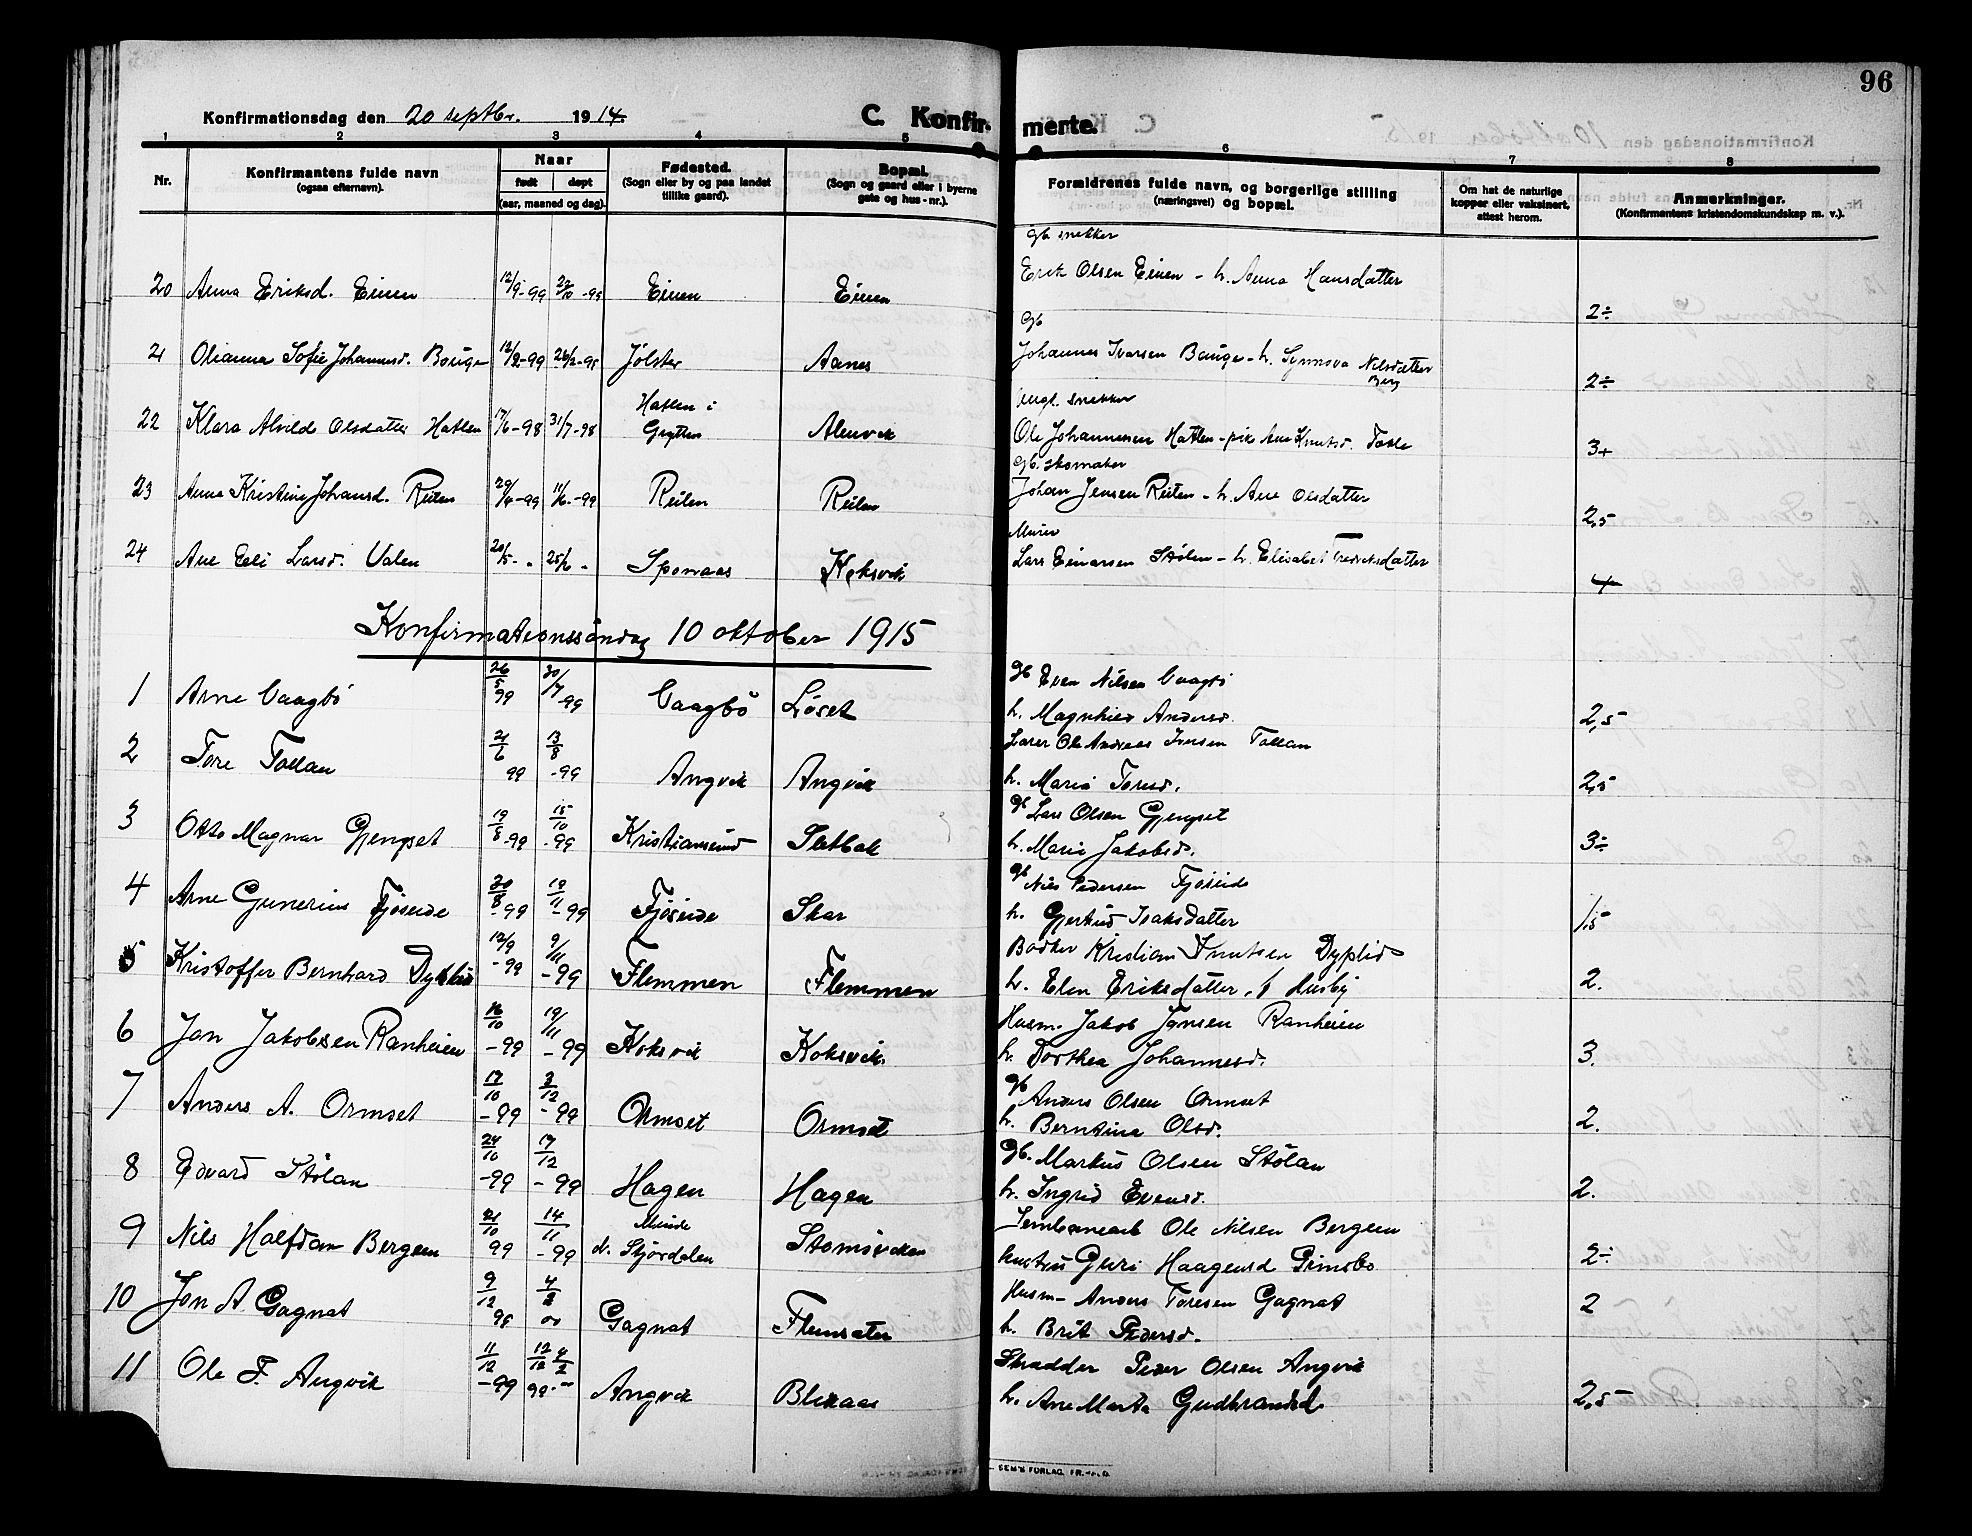 96
Konfirmationsdag den 20 septbr. 1914.
C. Konfirmerte.
1 2 3 4 5 6 7 8
Nr.
Konfirmantens fulde navn
(ogsaa efternavn).
Naar
født døpt
(aar, maaned og dag).
Fødested.
(Sogn eller by og paa landet
tillike gaard).
Bopæl.
(Sogn og gaard eller i byerne
gate og hus-nr.).
Forældrenes fulde navn, og borgerlige stilling
(næringsvei) og bopæl.
Om hat de naturlige
kopper eller vaksinert,
attest herom.
Anmerkninger.
(Konfirmantens kristendomskundskap m. v.).
gb. snekker
20 Anna Eriksd. Einen 12/9-99 22/10-99 Einen Einen Erik Olsen Einen - h. Anna Hansdatter 2÷
gb
21 Olianna Sofie Johannesd. Bauge Jølster Aanes Johannes Ivarsen Bauge - h. Synnøva Nilsdatter Berg 2÷
ungk. snekker
22 Klara Alvilde Olsdatter Hatlen 17/6-98 31/7-98 Hatlen i Grytten Alenvik Ole Johannesen Hatlen - pike Ane Knutsd. 3+
gb. skomaker
23 Anna Kristine Johansd. Reiten 29/4-99 11/6-99 Reiten Reiten Johan Jensen Reiten - h. Ane Olsdatter 2,5
Murer
24 Ane Eli Larsd. Valen 20/5 " 25/6 " Sponaas Koksvik Lars Einarsen Stølen - h. Elisabet Fredriksdatter 4
Konfirmationssöndag 10 oktober 1915
1 Arne Vaagbö 26/5 99 30/7-99 Vaagbö Löset gb Even Nilsen Vaagbö
h. Magnhild Andersd. 2,5
2 Tore Tollan 21/6 99 13/8-99 Angvik Angvik Lærer Ole Andreas Iversen Tollan
h. Maria Toresd. 2,5
3 Otto Magnar Gjengset 19/8-99 15/10-99 Kristiansund Slatbak gb Lars Olsen Gjengset
h. Marie Jakobsd. 3÷
4 Arne Gunerius Fjöseide 30/8-99 19/11-99 Fjöseide Skar gb Nils Pedersen Fjöseide
h. Gjertrud Isaksdatter 1,5
5 Kristoffer Bernhard Dyplid 12/9-99 9/11-99 Flemmen Flemmen Bödker Kristian Knutsen Dyplid
h. Elen Eriksdatter, f Husby 2.
6 Jon Jakobsen Ranheien 16/10-99 19/11-99 Koksvik Koksvik Husm. Jakob Jonsen Ranheien
h. Dorthea Johannesd. 3.
7 Anders A. Ormset 17/10-99 3/12-99 Ormset Ormset gb Anders Olsen Ormset
h. Berntine Olsd. 2.
8 Edvard Stölan 24/10-99 17/12-99 Hagen Hagen gb. Markus Olsen Stölan
h. Ingrid Evensd. 2.
9 Nils Halfdan Bergeen 21/10 99 14/11-99 Stjördalen Ole Nilsen Bergeen
hustru Guri Haagensd 2÷
10 Jon A Gagnat 9/12 99 4/2 00 Gagnat Flemsæter Husm- Anders Toresen Gagnat
h. Brit Pedersd. 2
11 Ole F. Angvik 11/12-99 Angvik Blikaas Skrædder Peder Olsen Angvik
h. Ane Marta Gudbrandsd 2,5
SEM'S FORLAG, FR.HALD.